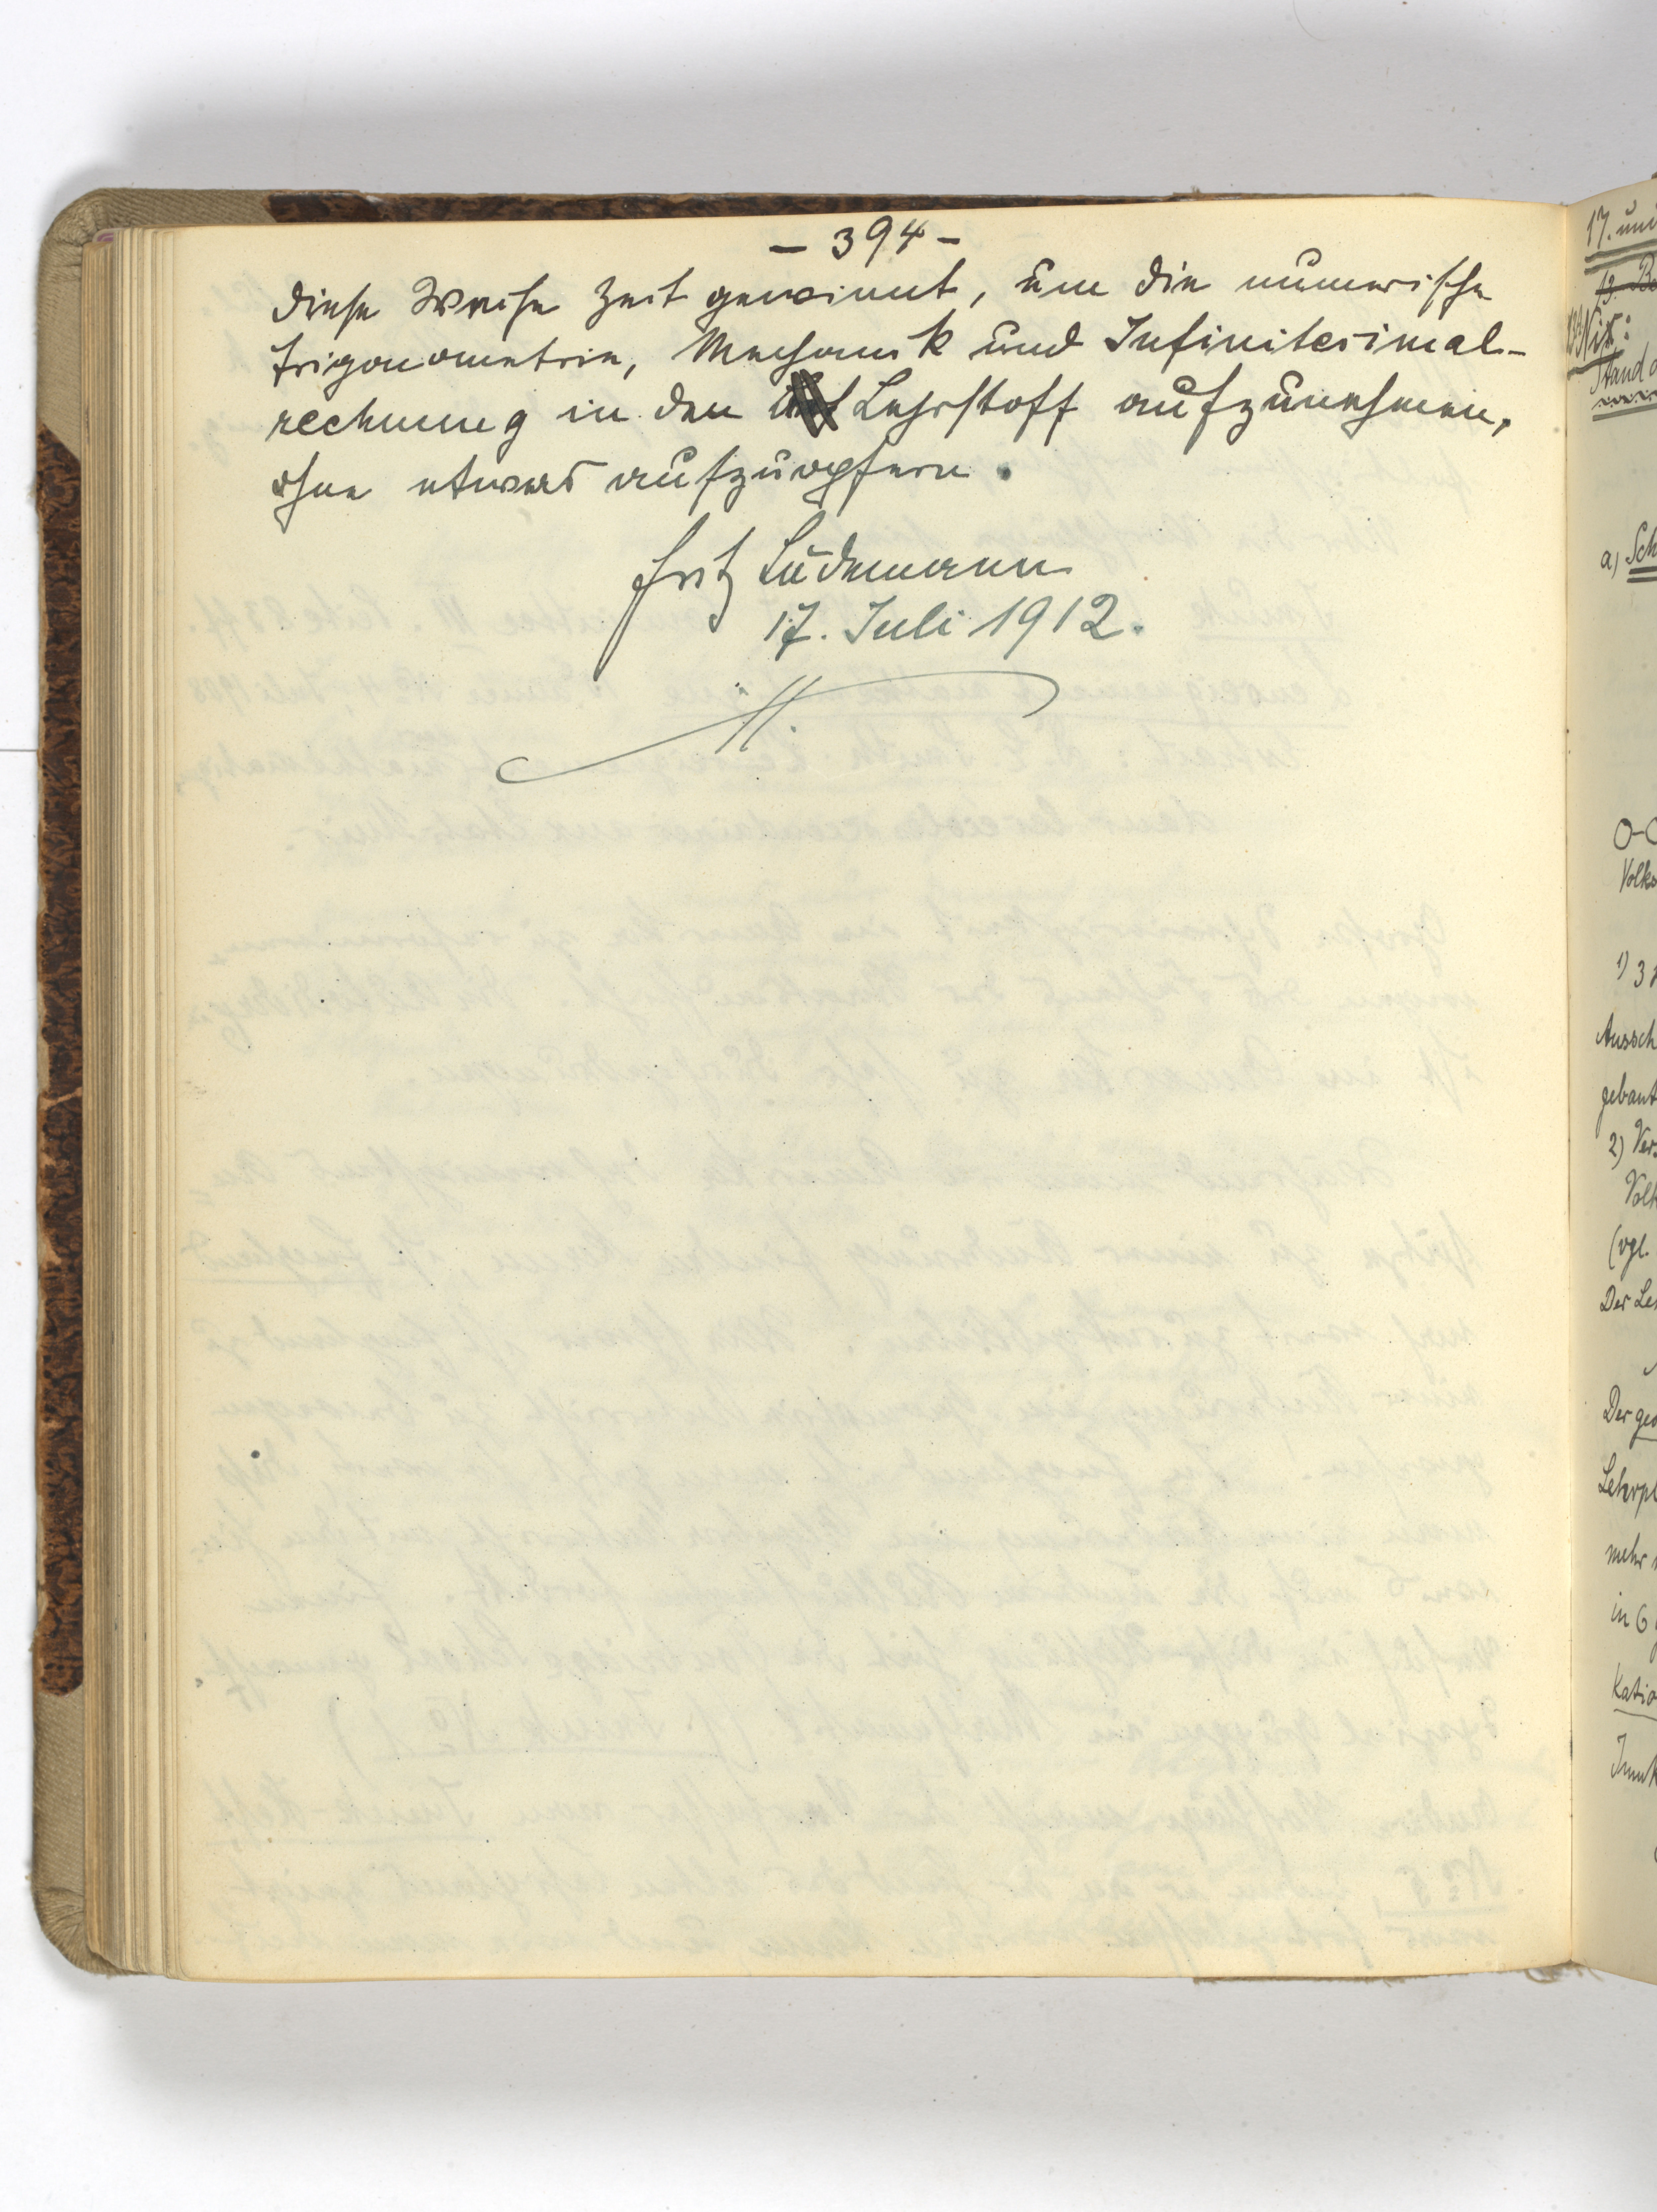 - 394 -
diese Weise Zeit gewinnt, um die numerische
Trigonometrie, Mechanik und Infinitesimal-
rechnung in den Lehrstoff aufzunehmen,
ohne etwas aufzuopfern.
Fritz Lüdemann
17. Juli 1912.
H.
17. und
Stand d
a) Sch
Volks
1) 3
Aussch
gebaut
2) Vers
Volk
(vgl.
Der Le
Der geo
Lehrpl
mehr
in 6
katio